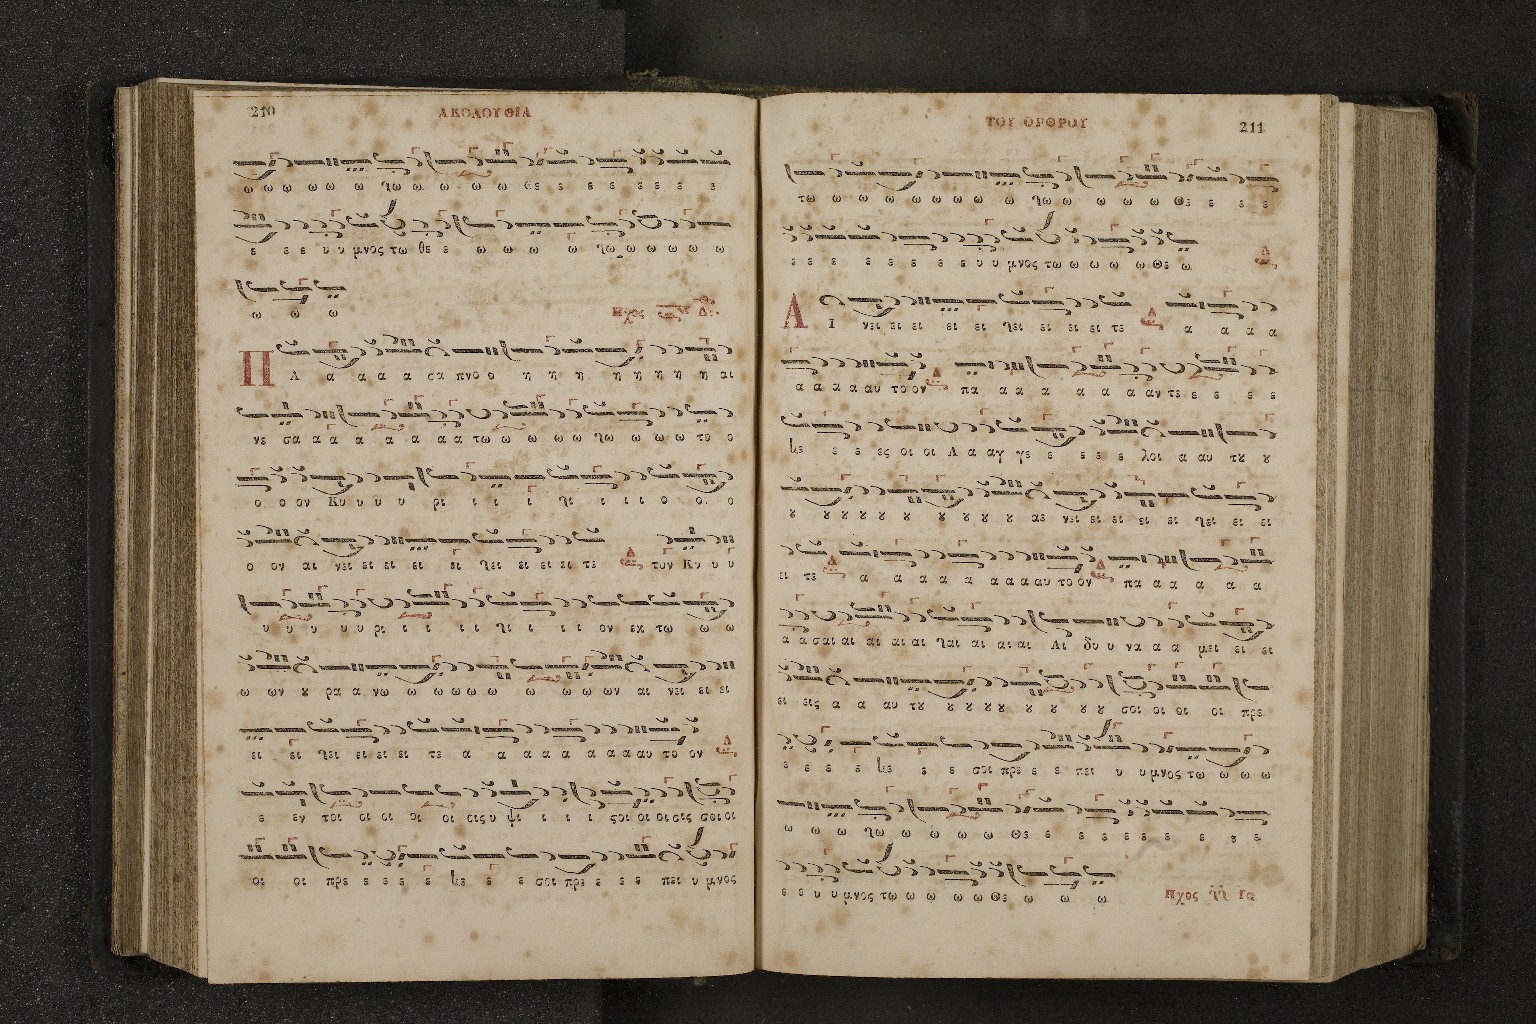 210
ΑΚΟΛΟΥΘΙΑ
ω ω ω ω ω ω λω ω ω ω ω θε ε ε ε ε ε ε ε
ε ε ε υ υ μνος τω θε ε ω ω ω ω λω ω ω ω ω ω
ω ω ω
Ηχος Δι.
Π Α α α α α σα πνο ο η η η η η η η η αι
νε σα α α α α α α α τω ω ω ω ω λω ω ω ω το ο
ο ο ον Κυ υ υ υ ρι ι ι ι λι ι ι ι ο ο ο
ο ον αι νει ει ει ει ει λει ει ει ει τε τον Κυ υ υ
υ υ υ υ υ ρι ι ι ι ι λι ι ι ι ον εκ τω ω ω
ω ων ȣ ρα α νω ω ω ω ω ω ω ω ω ων αι νει ει ει
ει ει λει ει ει ει τε α α α α α α α α αυ το ον
ε εν τοι οι οι οι οι οις υ ψι ι ι ι ςοι οι οι οις σοι οι
οι οι πρε ε ε ε ε με ε ε σοι πρε ε ε ε πει υ μνος
ΤΟΥ ΟΡΘΡΟΥ
211
τω ω ω ω ω ω ω ω ω λω ω ω ω ω θε ε ε ε
ε ε ε ε ε ε ε ε υ υ μνος τω ω ω ω ω θε ω
Α Ι νει ει ει ει ει λει ει ει ει τε α α α α
α α α α αυ το ον πα α α α α α α αν τε ε ε ε ε
με ε ε ες οι οι Α α αγ γε ε ε ε ε λοι α αυ τȣ ȣ
ȣ ȣ ȣ ȣ ȣ ȣ ȣ ȣ ȣ ȣ αι νει ει ει ει ει λει ει ει
ει τε α α α α α α α α αυ το ον πα α α α α α
α α σαι αι αι αι αι λαι αι αι αι Αι δυ υ να α α μει ει ει
ει εις α α αυ τȣ ȣ ȣ ȣ ȣ ȣ ȣ ȣ ȣ σοι οι οι οι πρε
ε ε ε ε με ε ε σοι πρε ε ε πει υ υ μνος τω ω ω ω
ω ω ω λω ω ω ω ω θε ε ε ε ε ε ε ε ε ε
ε ε υ υ μνος τω ω ω ω ω θε ω ω ω
Ηχος Γα